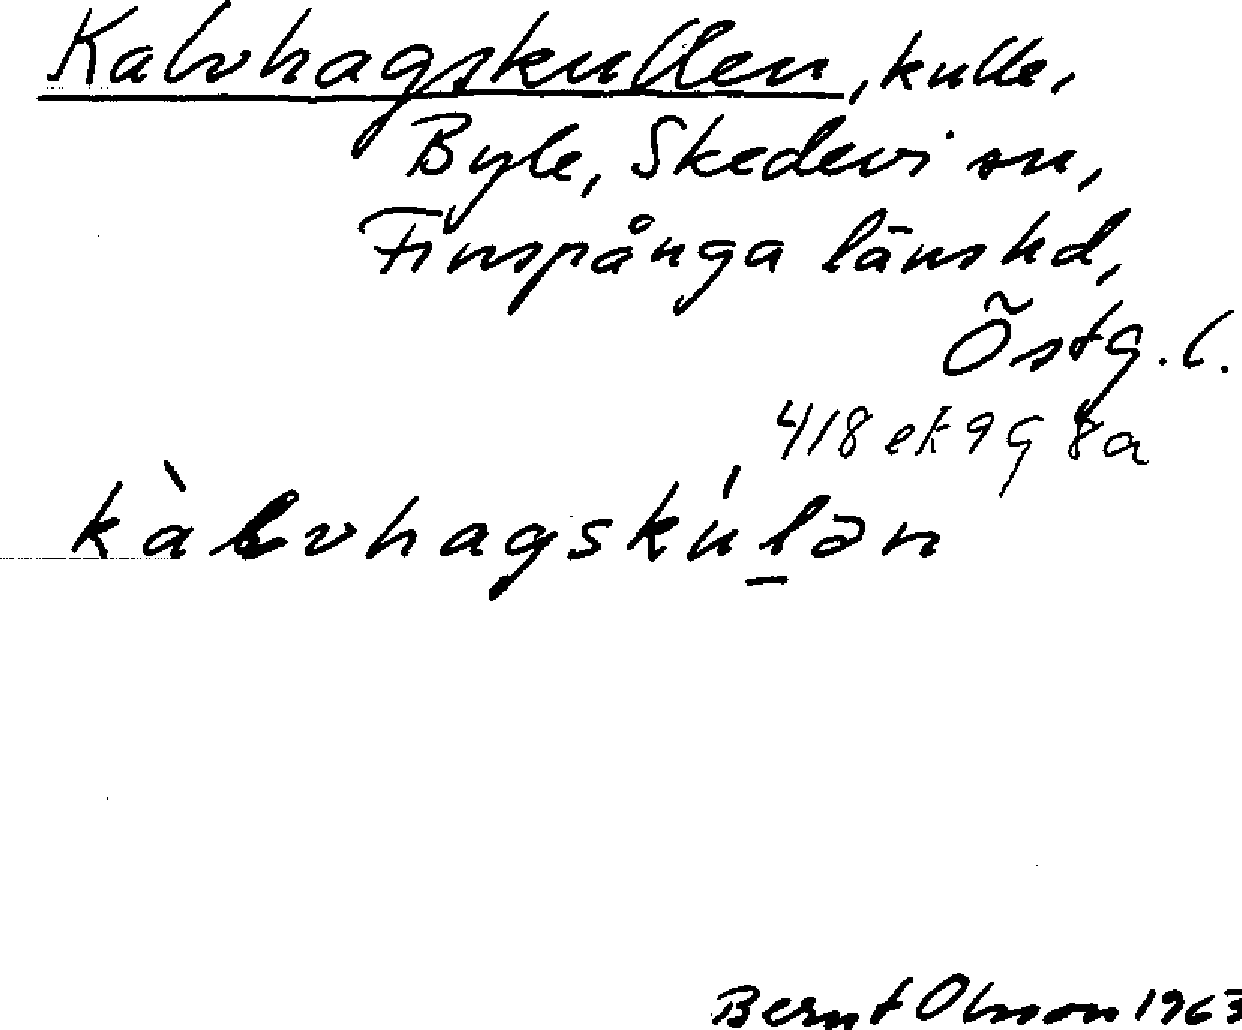 Kalvhagskullen, kulle,
Byle, Skedevi sn,
Finspånga länshd,
Östg. l.
418 ek 9 G 8 a
kàlvhagskúl̲ən
Bernt Olsson 1963